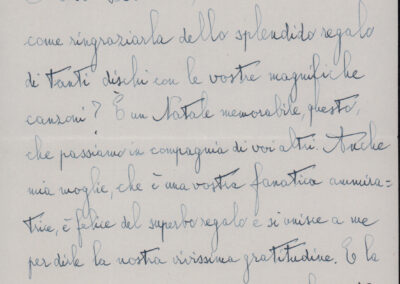 come ringraziarla dello splendido regalo
di tanti dischi con le vostre magnifiche
canzoni? È un Natale memorabile, questo,
che passiamo in compagnia di voi altri. Anche
mia moglie, che è una vostra fanatica ammira=
trice, è felice del superbo regalo e si unisce a me
per dirle la nostra vivissima gratitudine. E la